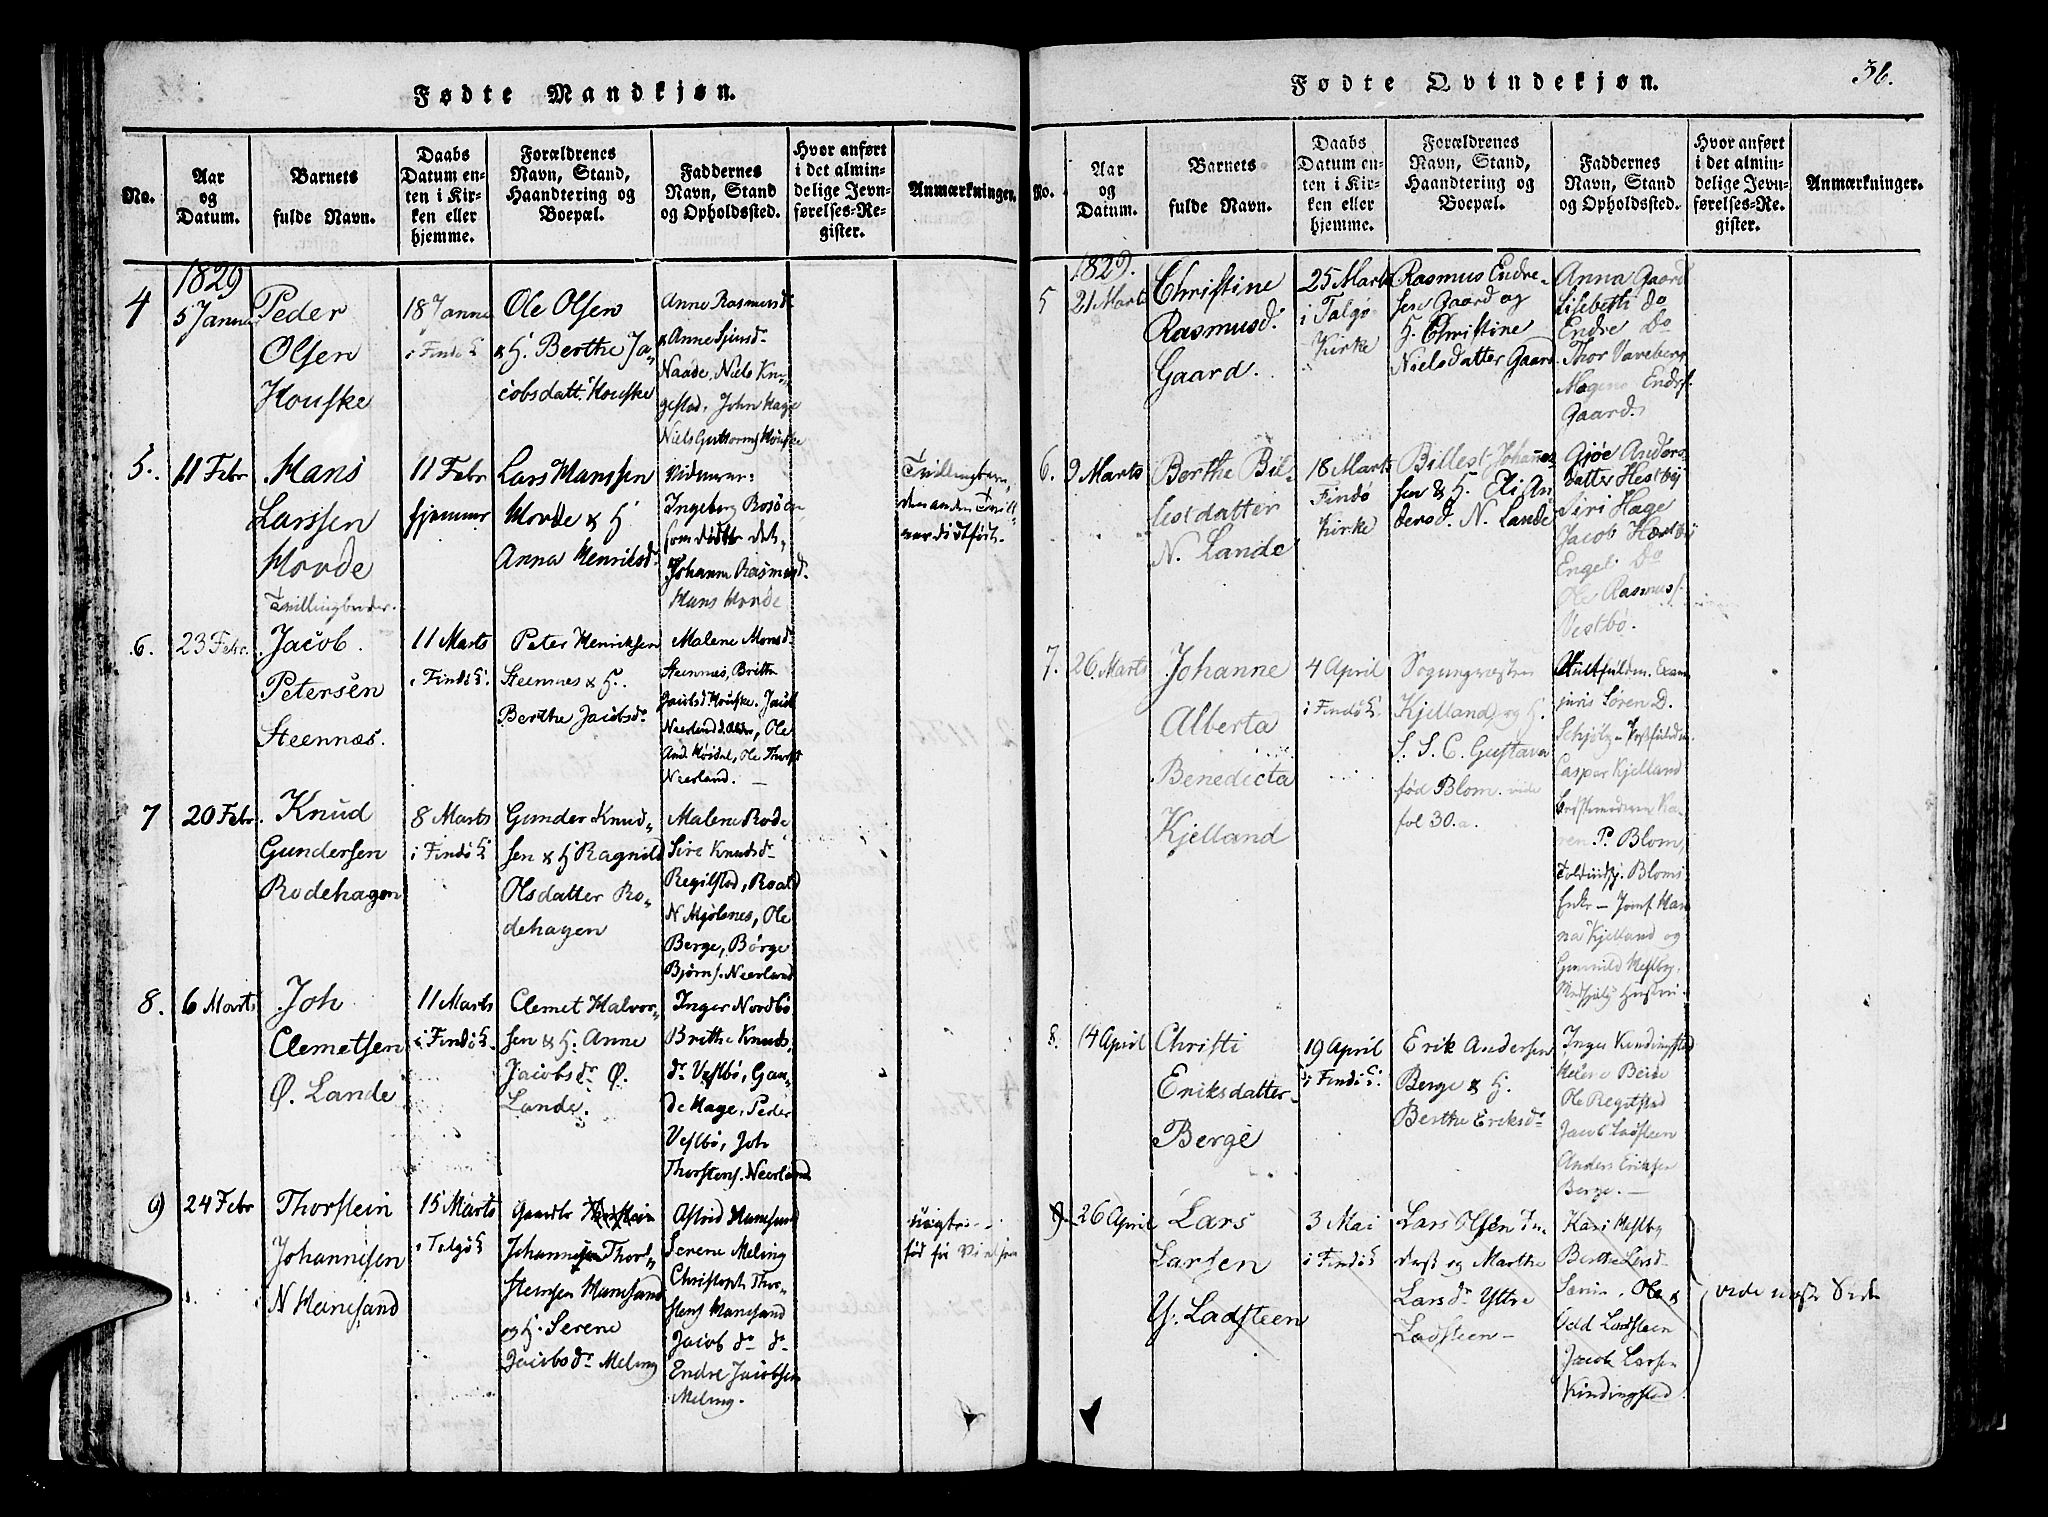 Fødte Mandkjøn.
No.
Aar
og
Datum.
Barnets
fulde Navn.
Daabs
Datum en-
ten i Kir-
ken eller
hjemme.
Forældrenes
Navn, Stand,
Haandtering og
Boepæl.
Faddernes
Navn, Stand
og Opholdssted.
Hvor anført
i det almin-
delige Jevn-
førelses-Re-
gister.
Anmærkninger.
1829
4
5 Januar
Peder
Olsen
Houske
18 Janne
i Findö K
Ole Olsen
& H. Berthe Ja-
cobsdatt. Houske
Anne Rasmusd.
& Anne Sjursd.
Naade, Niels Kin-
gestad, John Hage
Niels Guttorms Houske
5.
11 Febr
Hans
Larssen
Hovde
Tvillingbroder.
11 Febr
hjemme
Lars Hanssen
Hovde & H
Anna Henriksd.
Vidner:
Ingeborg
som døbte det,
Johanna Rasmusd.
Hans Hovde
den anden Tvill
var dödfödt.
6.
23 Febr.
Jacob
Petersen
Steennæs.
11 Marts
i Findö K.
Peter Henriksen
Steennæs & H.
Berthe Jacobsdr
Malene Monsdr
Steennæs, Britha
Jacobsd Houske. Jacob
Neerland d. Ældre, Ole
And Hoidal, Ole Thorst
Neerland. —
7
20 Febr
Knud
Gundersen
Rodehagen
8 Marts
i Findö K
Gunder Knud-
sen & H Ragnild
Olsdatter Ro-
dehagen
Malene Rode
Sire Knudsdr
Regilstad, Roald
N Mjölsnes, Ole
Berge, Börge
Björns. Neerland
8.
6 Marts
Joh
Clemetsen
Ø. Lande
11 Marts
i Findö K.
Clemet Halvor-
sen & H. Anne
Jacobsdr Ø.
Lande.
Inger Nordbö
Brithe Knuds-
dr Vestbö, Gau-
de Hage, Peder
Vestbö, Joh
Thorstens. Neerland
9
24 Febr
Thorstein
Johannesen
N Hanesand
15 Marts
i Talgö K
Johannes Thor-
stensen Hanesand
og H. Serene
Jacobsdr Meling
Astrid Hanesand
Serene Meling
Christoph Thor-
stens Hanesand
Jacob dr dr
Endre Jacobsen
Meling.
uægte
Fødte Qvindekjøn.
36.
No.
Aar
og
Datum.
Barnets
fulde Navn.
Daabs
Datum en-
ten i Kir-
ken eller
hjemme.
Forældrenes
Navn, Stand,
Haandtering og
Boepæl.
Faddernes
Navn, Stand
og Opholdssted.
Hvor anført
i det almin-
delige Jevn-
førelses-Re-
gister.
Anmærkninger.
1829.
5
21 Marts
Christine
Rasmusd.
Gaard.
25 Marts
i Talgö
Kirke
Rasmus Endre-
sen Gaard og
H. Christine
Nielsdatter Gaard
Anna Gaard
Lisebeth do
Endre do
Thor Vareberg
Mogens Endrs.
Gaard.
6.
9 Marts
Berthe Bil-
lestdatter
N. Lande
18 Marts
Findö
Kirke
Billest Johanne-
sen & H. Eli An
dersd. N. Lande
Gjöe Anders
datter Hestbÿ
Siri Hage
Jacob Hestbÿ
Engel do
Ole Rasmuss.
Vestbö.
7.
26 Marts
Johanne
Alberta
Benedicta
Kjelland
4 April
i Findö K.
Sognepræsten
Kjelland og H.
S. S. C. Gustava
fød Blom. vide
fol 30.a.
juris Søren D.
Schjötz
Caspar Kjelland
P. Blom,
Bloms
Enke — Jomf. Han
na Kjelland og
Gunnild Hestby,
8.
14 April
Christi
Eriksdatter
Berge
19 April
i Findö K.
Erik Andersen
Berge & H.
Berthe Eriksdr
Inger Kindingstad
Malene Berge
Ole Regilstad
Jacob Ladsteen
Anders Eriksen
Berge. —
9.
26 April
Lars
Larsen
Y. Ladsteen
3 Mai
i Findö K
Lars Olsen In
derst og Marthe
Larsdr Yttre
Ladsteen —
Kari Hestby
Berthe Larsd
Ole &
Odd Ladsteen
Jacob Larsen
Kindingstad.
vide næste Side